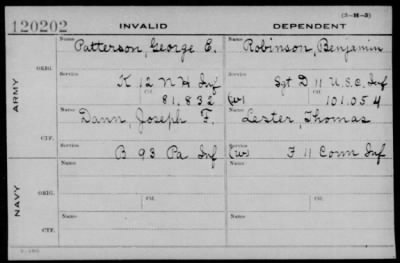 (3-H-3)
120202 INVALID DEPENDENT
Name Patterson, George E. Name Robinson, Benjamin
ARMY
ORIG. Service K 12 N H Inf Service Sgt D 11 U.S.C. Inf
Ctf. 81,832 (W) Ctf. 101,054
Name Dann, Joseph F. Name Lester, Thomas
CTF. Service B 93 Pa Inf Service (W) F 11 Conn Inf
NAVY
Name Name
ORIG. Ctf. Ctf.
Name Name
CTF.